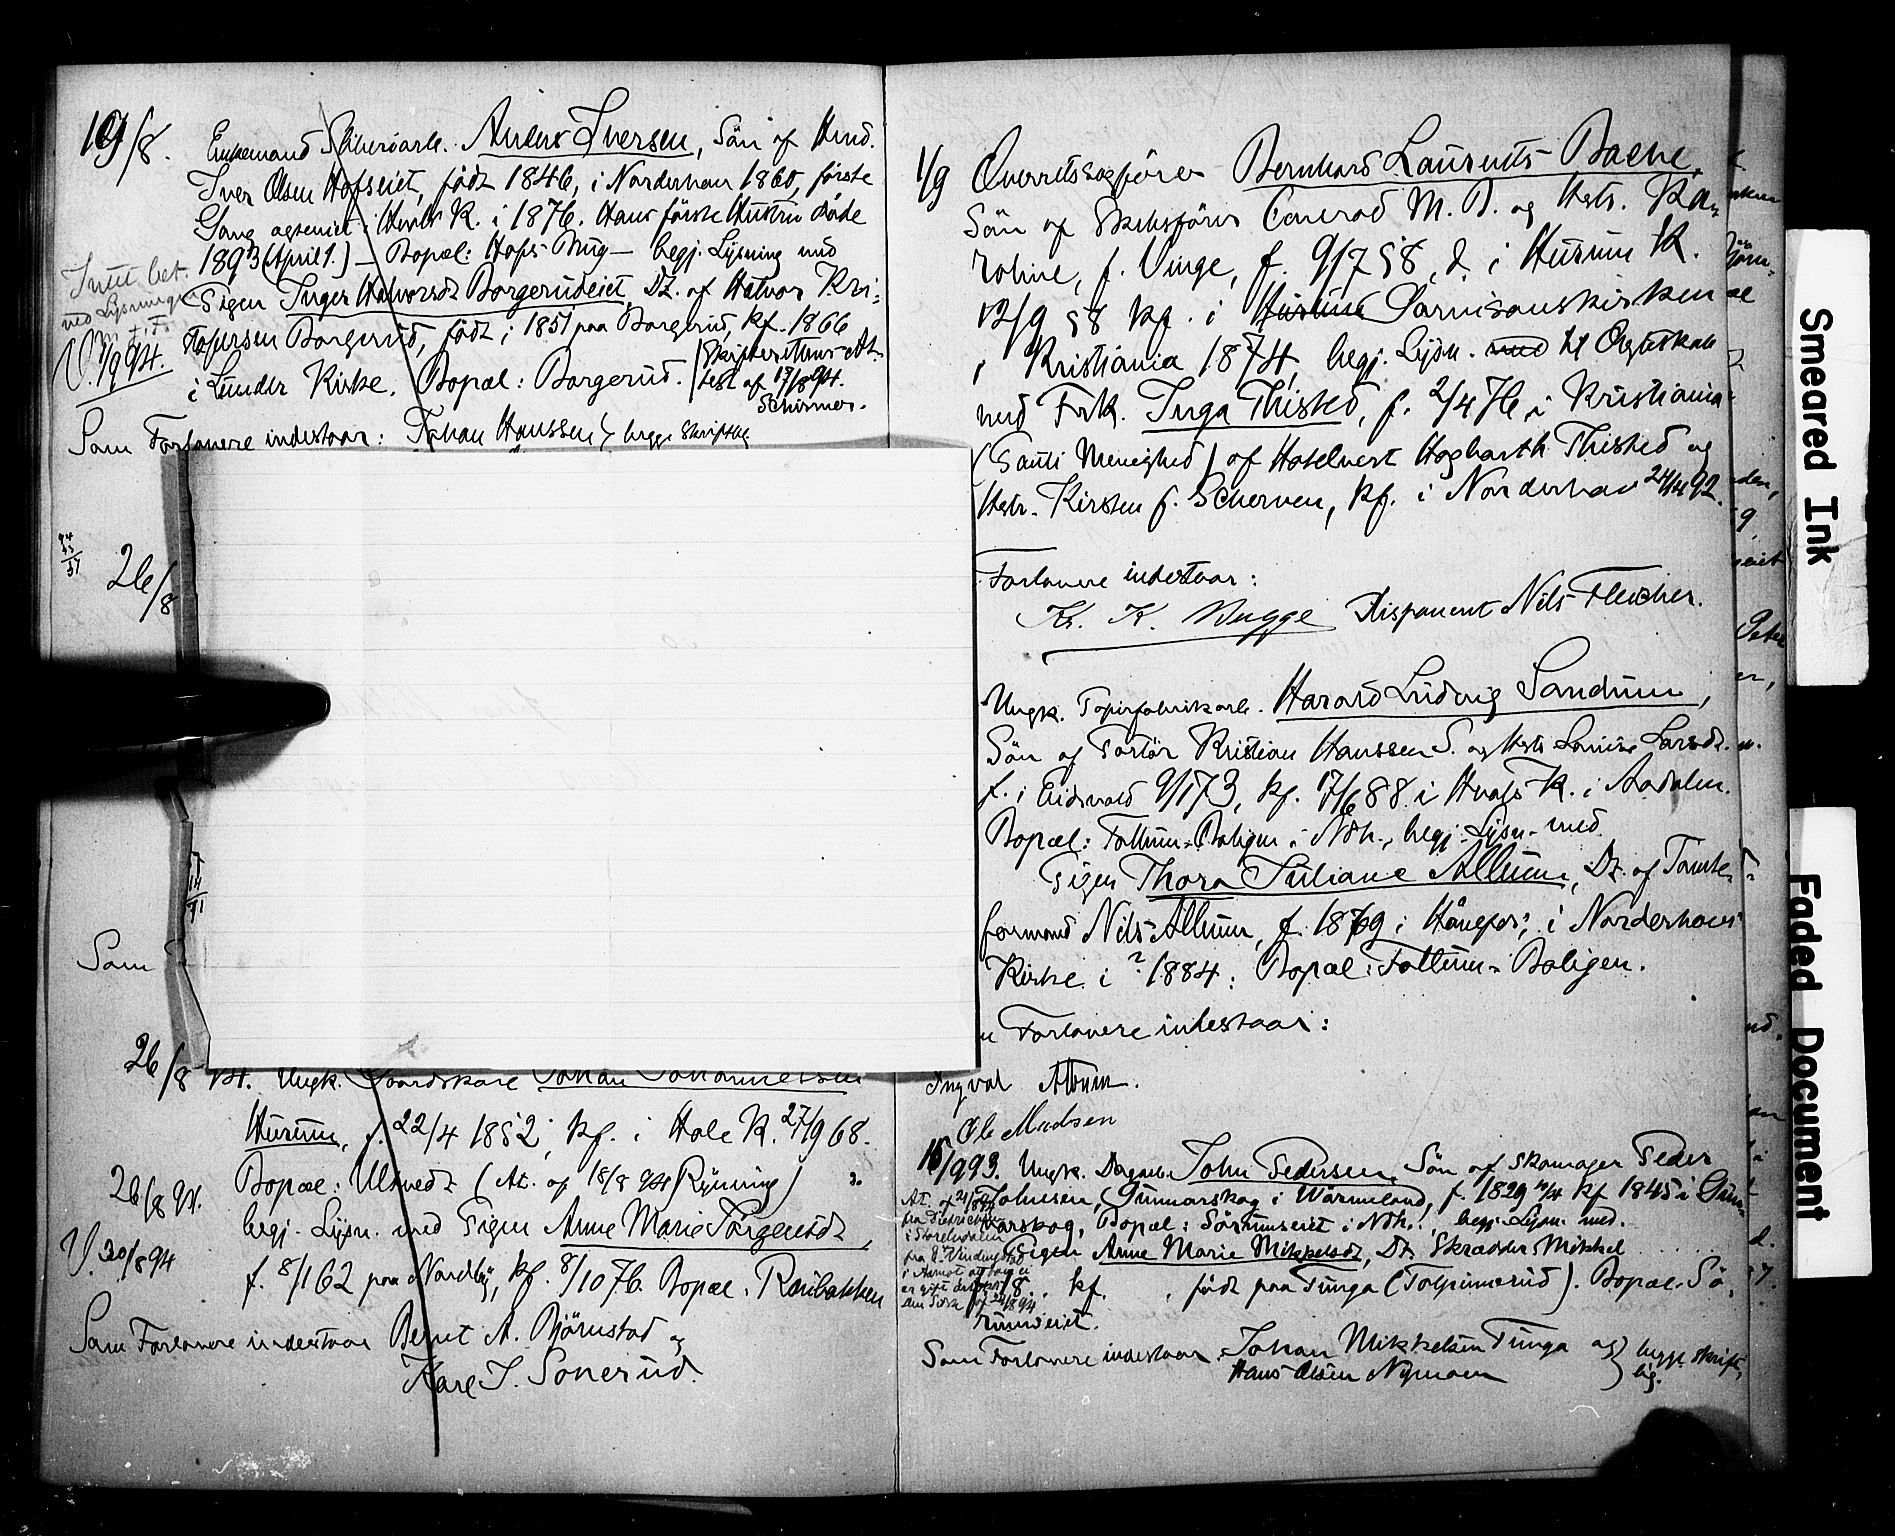 19/8. Enkemand Anders Iversen, Søn af Husmd.
Iver Olsen Hofseiet, født 1846, i Norderhov 1860, første
Gang i Hvals K. i 1876. Hans første Hustru døde
1893 (April 9.) — Bopæl: Hofs-Eng — begj. Lysning med
Pigen Inger Halvorsdr Borgerudeiet, Dr. af Halvor Kri-
stofersen Borgerud, født i 1851 paa Borgerud, kf. 1866
i Lunder Kirke. Bopæl: Borgerud. Skifterettens At-
test af 17/8 94.
Schirmer.
Intet bet.
ved Lysningen
V. 9/9 94.
Som Forlovere indestaar: Johan Hanssen begge skriftlig
94
43
51
26/8
Som
26/8 94. Ungk. Gaardskarl Johan Johannessen
Hurum, f. 22/4 1852, kf. i Hole K. 27/9 68.
26/8 94. Bopæl: Ultvedt (At. af 18/8 94 Ryning)
begj. Lysn. med Pigen Anne Marie Jørgensdr,
V. 30/8 94
f. 8/1 62 paa Nordby, kf. 8/10 76. Bopæl. Ravibakken
Som Forlovere indestaar Bernt A. Bjørnstad og
Karl J. Sonerud.
1/9 Overretssagfører Bernhard Laurents Bache,
Søn af Skibsfører Conrad M. B. og Hstr. Ka-
roline, f. Vinge, f. 9/7 58, d. i Hurum K.
12/9 58 kf. i Hurum Garnisonskirken
i Kristiania 1874, begj. Lysn. med til Ægteskab
med Frk. Inga Thisted, f. 2/4 76 i Kristiania
(Pauli Menighed) af Hotelvert Hogbarth Thisted og
Hstr. Kirsten f. Scherven, kf. i Norderhov 24/4 92.
Forlovere indestaar:
Kr. K. Bugge Disponent Nils Fleischer.
Ungk. Papirfabrikarb. Harald Ludvig Sandum,
Søn af Portør Kristian Hanssen S. og Hstr. Lovise Larsdr.
f. i Eidsvold 9/1 73, kf. 17/6 88 i Hvals K. i Aadalen.
Bopæl: Follum-Boligen i Ndh., begj. Lysn. med
Pigen Thora Juliane Allum, Dr. af Tomte-
formand Nils Allum, f. 1869 i Hønefos, i Norderhovs
Kirke i ? 1884. Bopæl: Follum-Boligen.
Forlovere indestaar:
Ingval Allum.
Ole Madsen
16/9 93. Ungk. Dagarb. John Pedersen, Søn af Skomager Peder
Johnsen, Gunnarskog i Wärmeland, f. 1829 kf 1845 i Gun-
narskog, Bopæl: Sørumseiet i Ndh., begj. Lysn. med.
Pigen Anne Marie Mikkelsdr, Dr. Skrædder Mikkel
f. 18.. kf. , født paa Tunga (Tolpinnrud). Bopæl. Sø-
rumseiet.
At. af 21/8 94
fra
i Storelvdalen
i Aamot at han ei
er gift
af 24/8 94
Som Forlovere indestaar. Johan Mikkelsen Tunga og
Hans Olsen Nymoen
begge skrift-
lig.
Smeared Ink
Faded Document